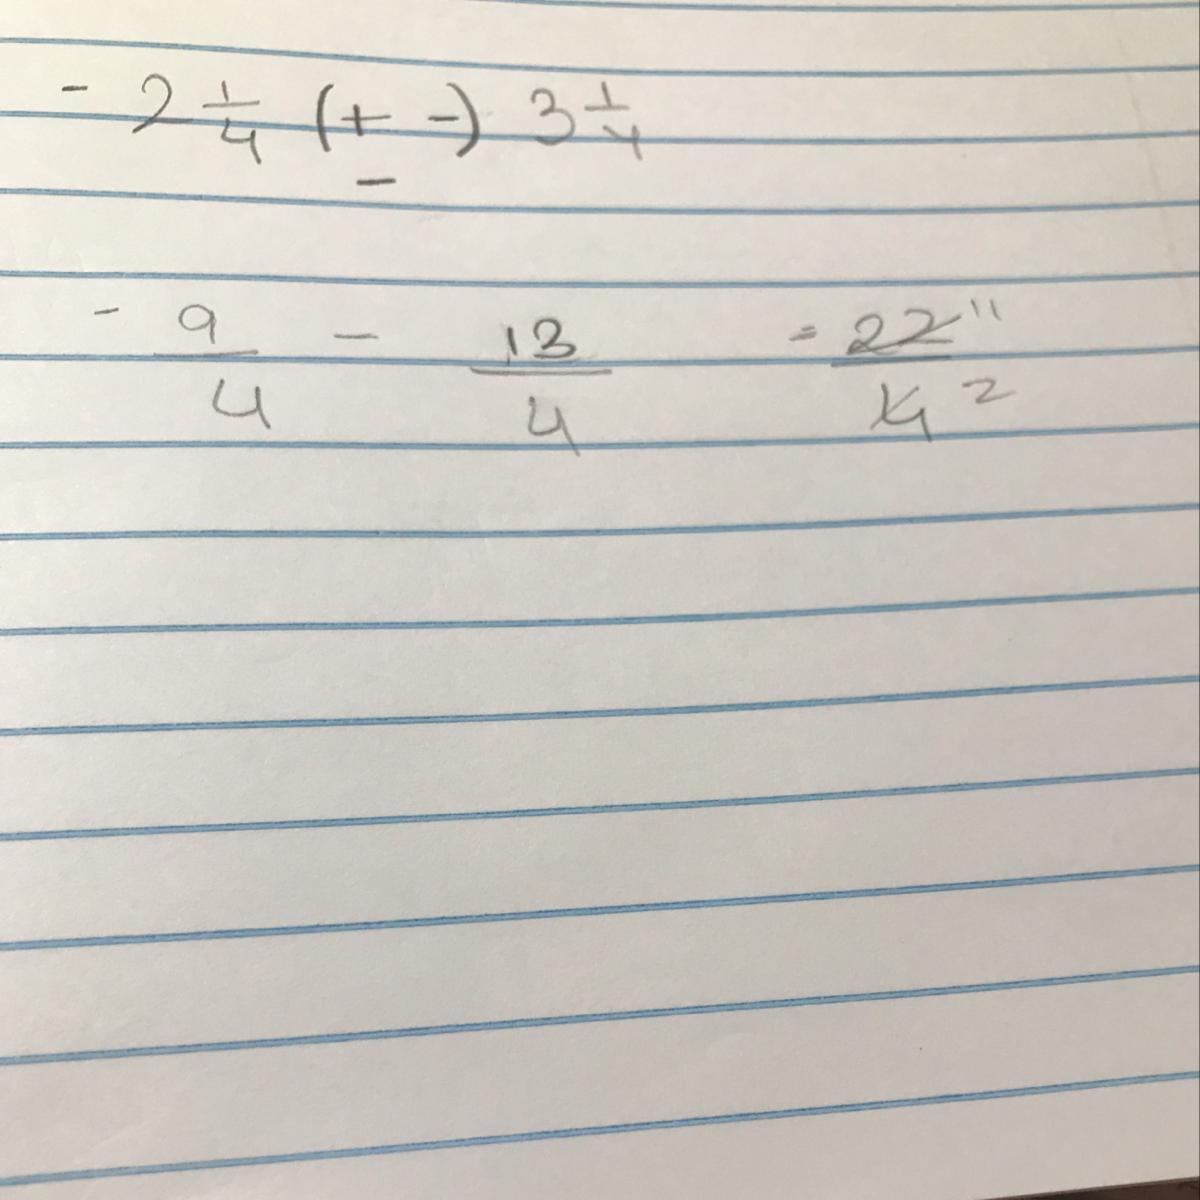 - 2 1/4 (+ -) 3 1/4
-
- 9/4 - 13/4 = 22/4 11 2